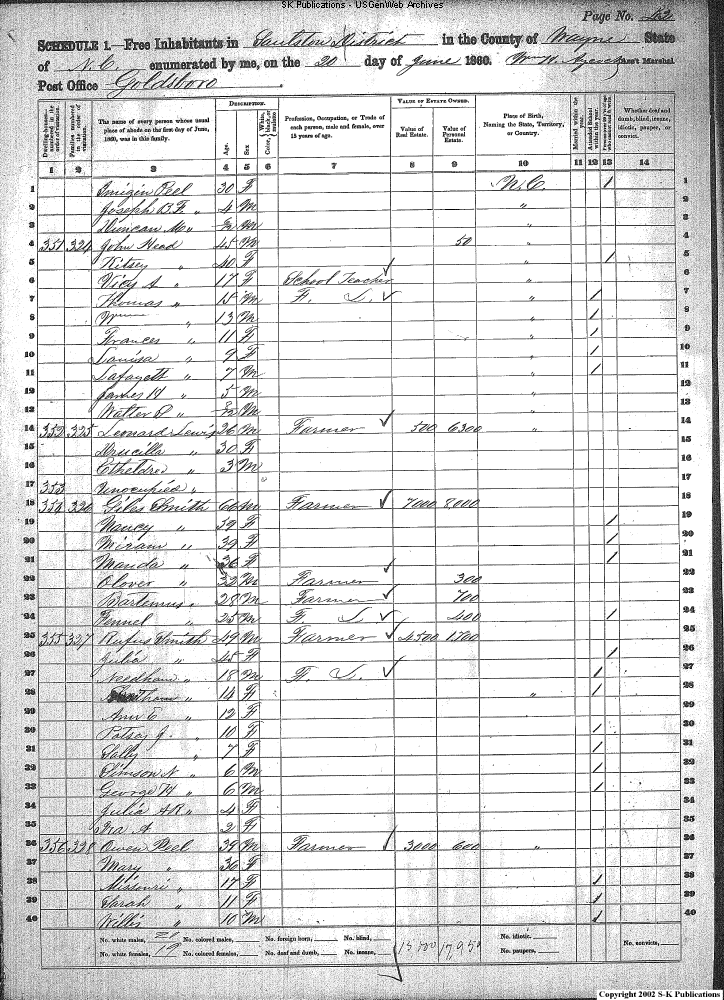 SK Publications - USGenWeb Archives
Page No. 42
SCHEDULE 1.—Free Inhabitants in Saulston District in the County of Wayne State
of N.C. enumerated by me, on the 20 day of June 1860. Wm H. Ass't Marshal
Post Office Goldsboro
DESCRIPTION. VALUE OF ESTATE OWNED.
Dwelling-houses numbered in the order of visitation. Families numbered in the order of visitation. The name of every person whose usual place of abode on the first day of June, 1860, was in this family. Age. Sex. Color, White, black, or mulatto. Profession, Occupation, or Trade of each person, male and female, over 15 years of age. Value of Real Estate. Value of Personal Estate. Place of Birth, Naming the State, Territory, or Country. Married within the year. Attended School within the year. Whether deaf and dumb, blind, insane, idiotic, pauper, or convict.
1 2 3 4 5 6 7 8 9 10 11 12 13 14
1 Peel 30 F N.C. / 1
2 Joseph B.F. " 4 M " 2
3 Duncan M " M " 3
4 351 324 John Head 45 M 50 " 4
5 Kitsey " 40 F " / 5
6 Vicy A " 17 F School Teacher " 6
7 Thomas " 15 M F. L. " / 7
8 " 13 M / 8
9 Frances " 11 F " / 9
10 Louisa " 9 F / 10
11 Lafayett " 7 M " / 11
12 James H " 5 M " 12
13 Walter P " M 13
14 352 325 Leonard Lewis 26 M Farmer 500 6300 " 14
15 Druscilla " 30 F 15
16 Etheldred " 3 M 16
17 353 Unoccupied " 17
18 354 326 Giles Smith 66 M Farmer 7000 8,000 18
19 Nancy " 39 F / 19
20 Miriam " 39 F / 20
21 Manda " 36 F / 21
22 Olover " 32 M Farmer 300 22
23 Bartimus " 28 M Farmer 700 23
24 Fennel " 25 M F. L. 400 / 24
25 355 327 Rufus Smith 49 M Farmer 4500 1,700 25
26 Julia " 45 F / 26
27 Needham " 18 M F. L. / 27
28 " 14 F " / 28
29 Ann E " 12 F 29
30 Patsey J. " 10 F / 30
31 Sally " 7 F / 31
32 Simson N " 6 M / 32
33 George W " 6 M / 33
34 Julia AR " 4 F 34
35 Ira A 2 F 35
36 356 328 Owen Peel 39 M Farmer 3000 600 " 36
37 Mary " 36 F 37
38 Missouri " 17 F / 38
39 Sarah " 11 F / 39
40 Willis " 10 M / 40
No. white males, No. colored males, No. foreign born, No. blind, No. idiotic,
No. white females, 19 No. colored females, No. deaf and dumb, No. insane, 15000 17,950 No. paupers, No. convicts,
Copyright 2002 S-K Publications